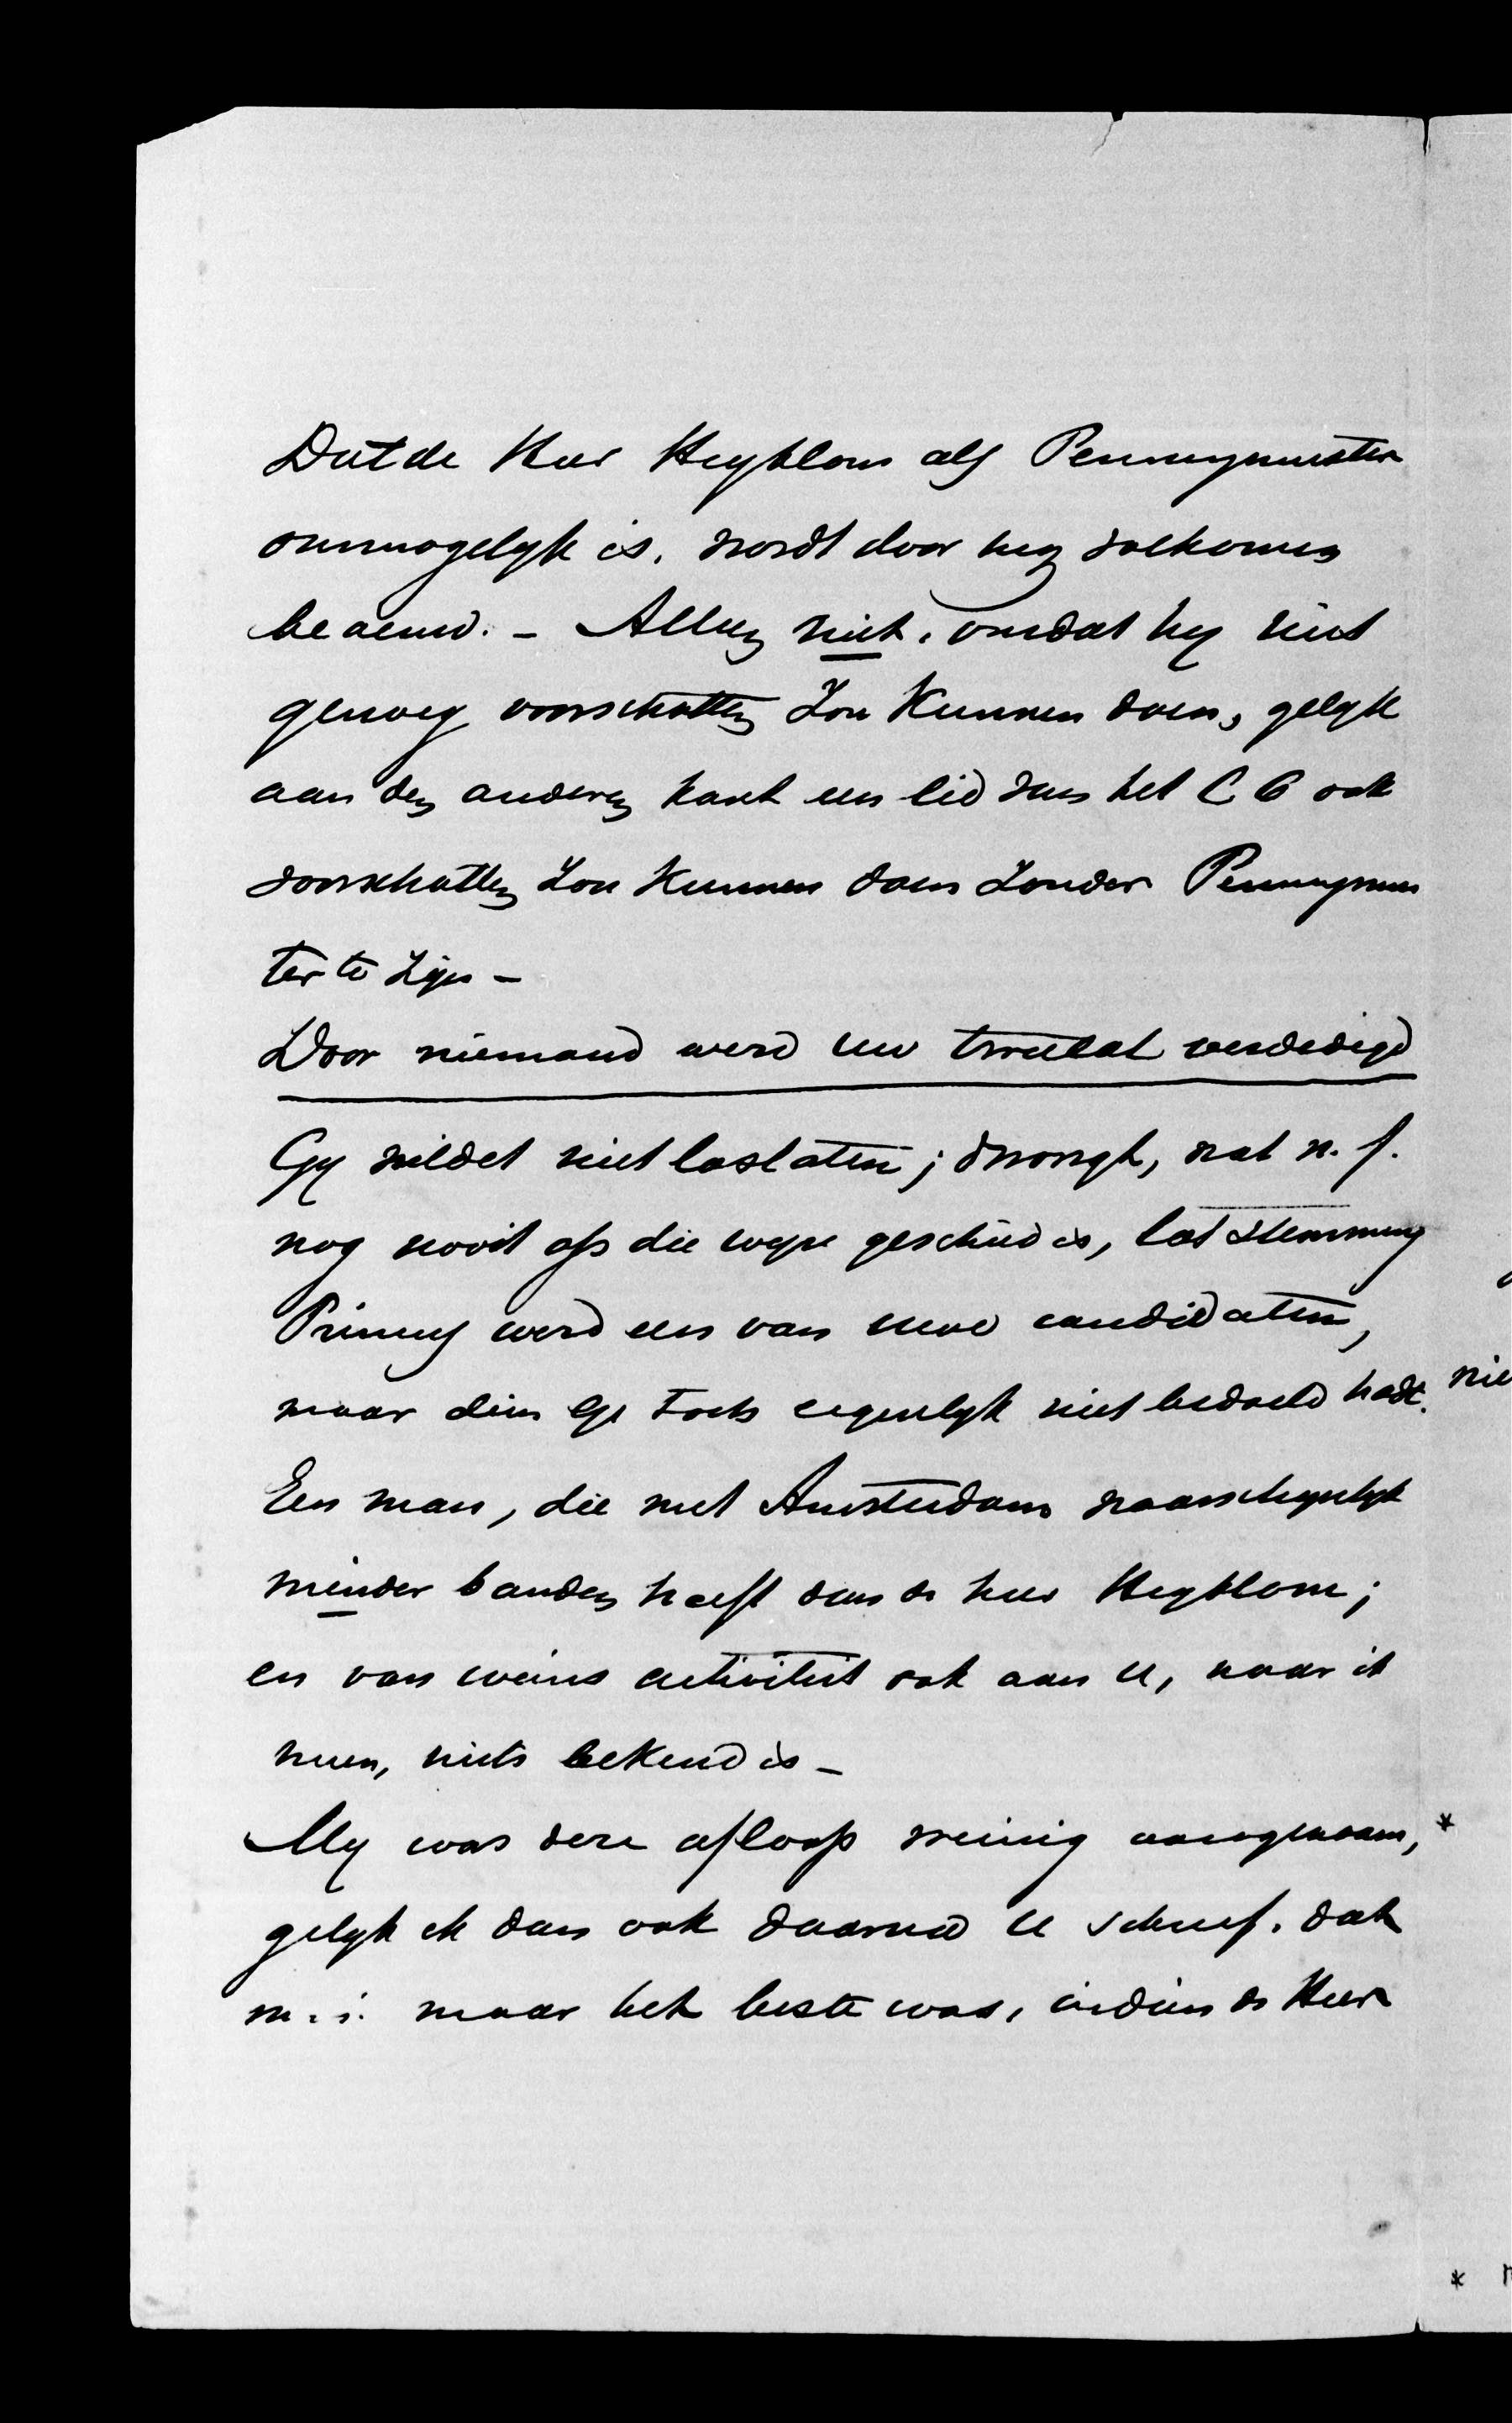 Dat de Heer Heyblom als Penningmeester
onmogelyk is, wordt door my volkomen
beaamd. - Alleen niet, omdat hy niet
genoeg voorschotten zou kunnen doen, gelyk
aan den anderen kant een lid van het C C ook
voorschotten zou kunnen doen zonder Penningmees
ter te zyn -
Door niemand werd uw tweetal verdedigd
Gy wildet niet loslaten; drongt, wat n. f.
nog nooit op die wyze geschied is, tot stemming
werd een van uwe candidaten,
maar dien Gy toch eigenlyk niet bedoeld hadt.
Een man, die met Amsterdam waarschynlyk
minder banden heeft dan de heer Heyblom;
en van wiens activiteit ook aan U, naar ik
meen, niets bekend is -
My was deze afloop weinig aangenaam, *
gelyk ik dan ook daarna U schreef, dat
m. i. maar het beste was, indien de Heer